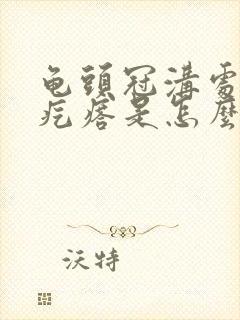 龟頭冠溝處
疙瘩是怎麼
沃特